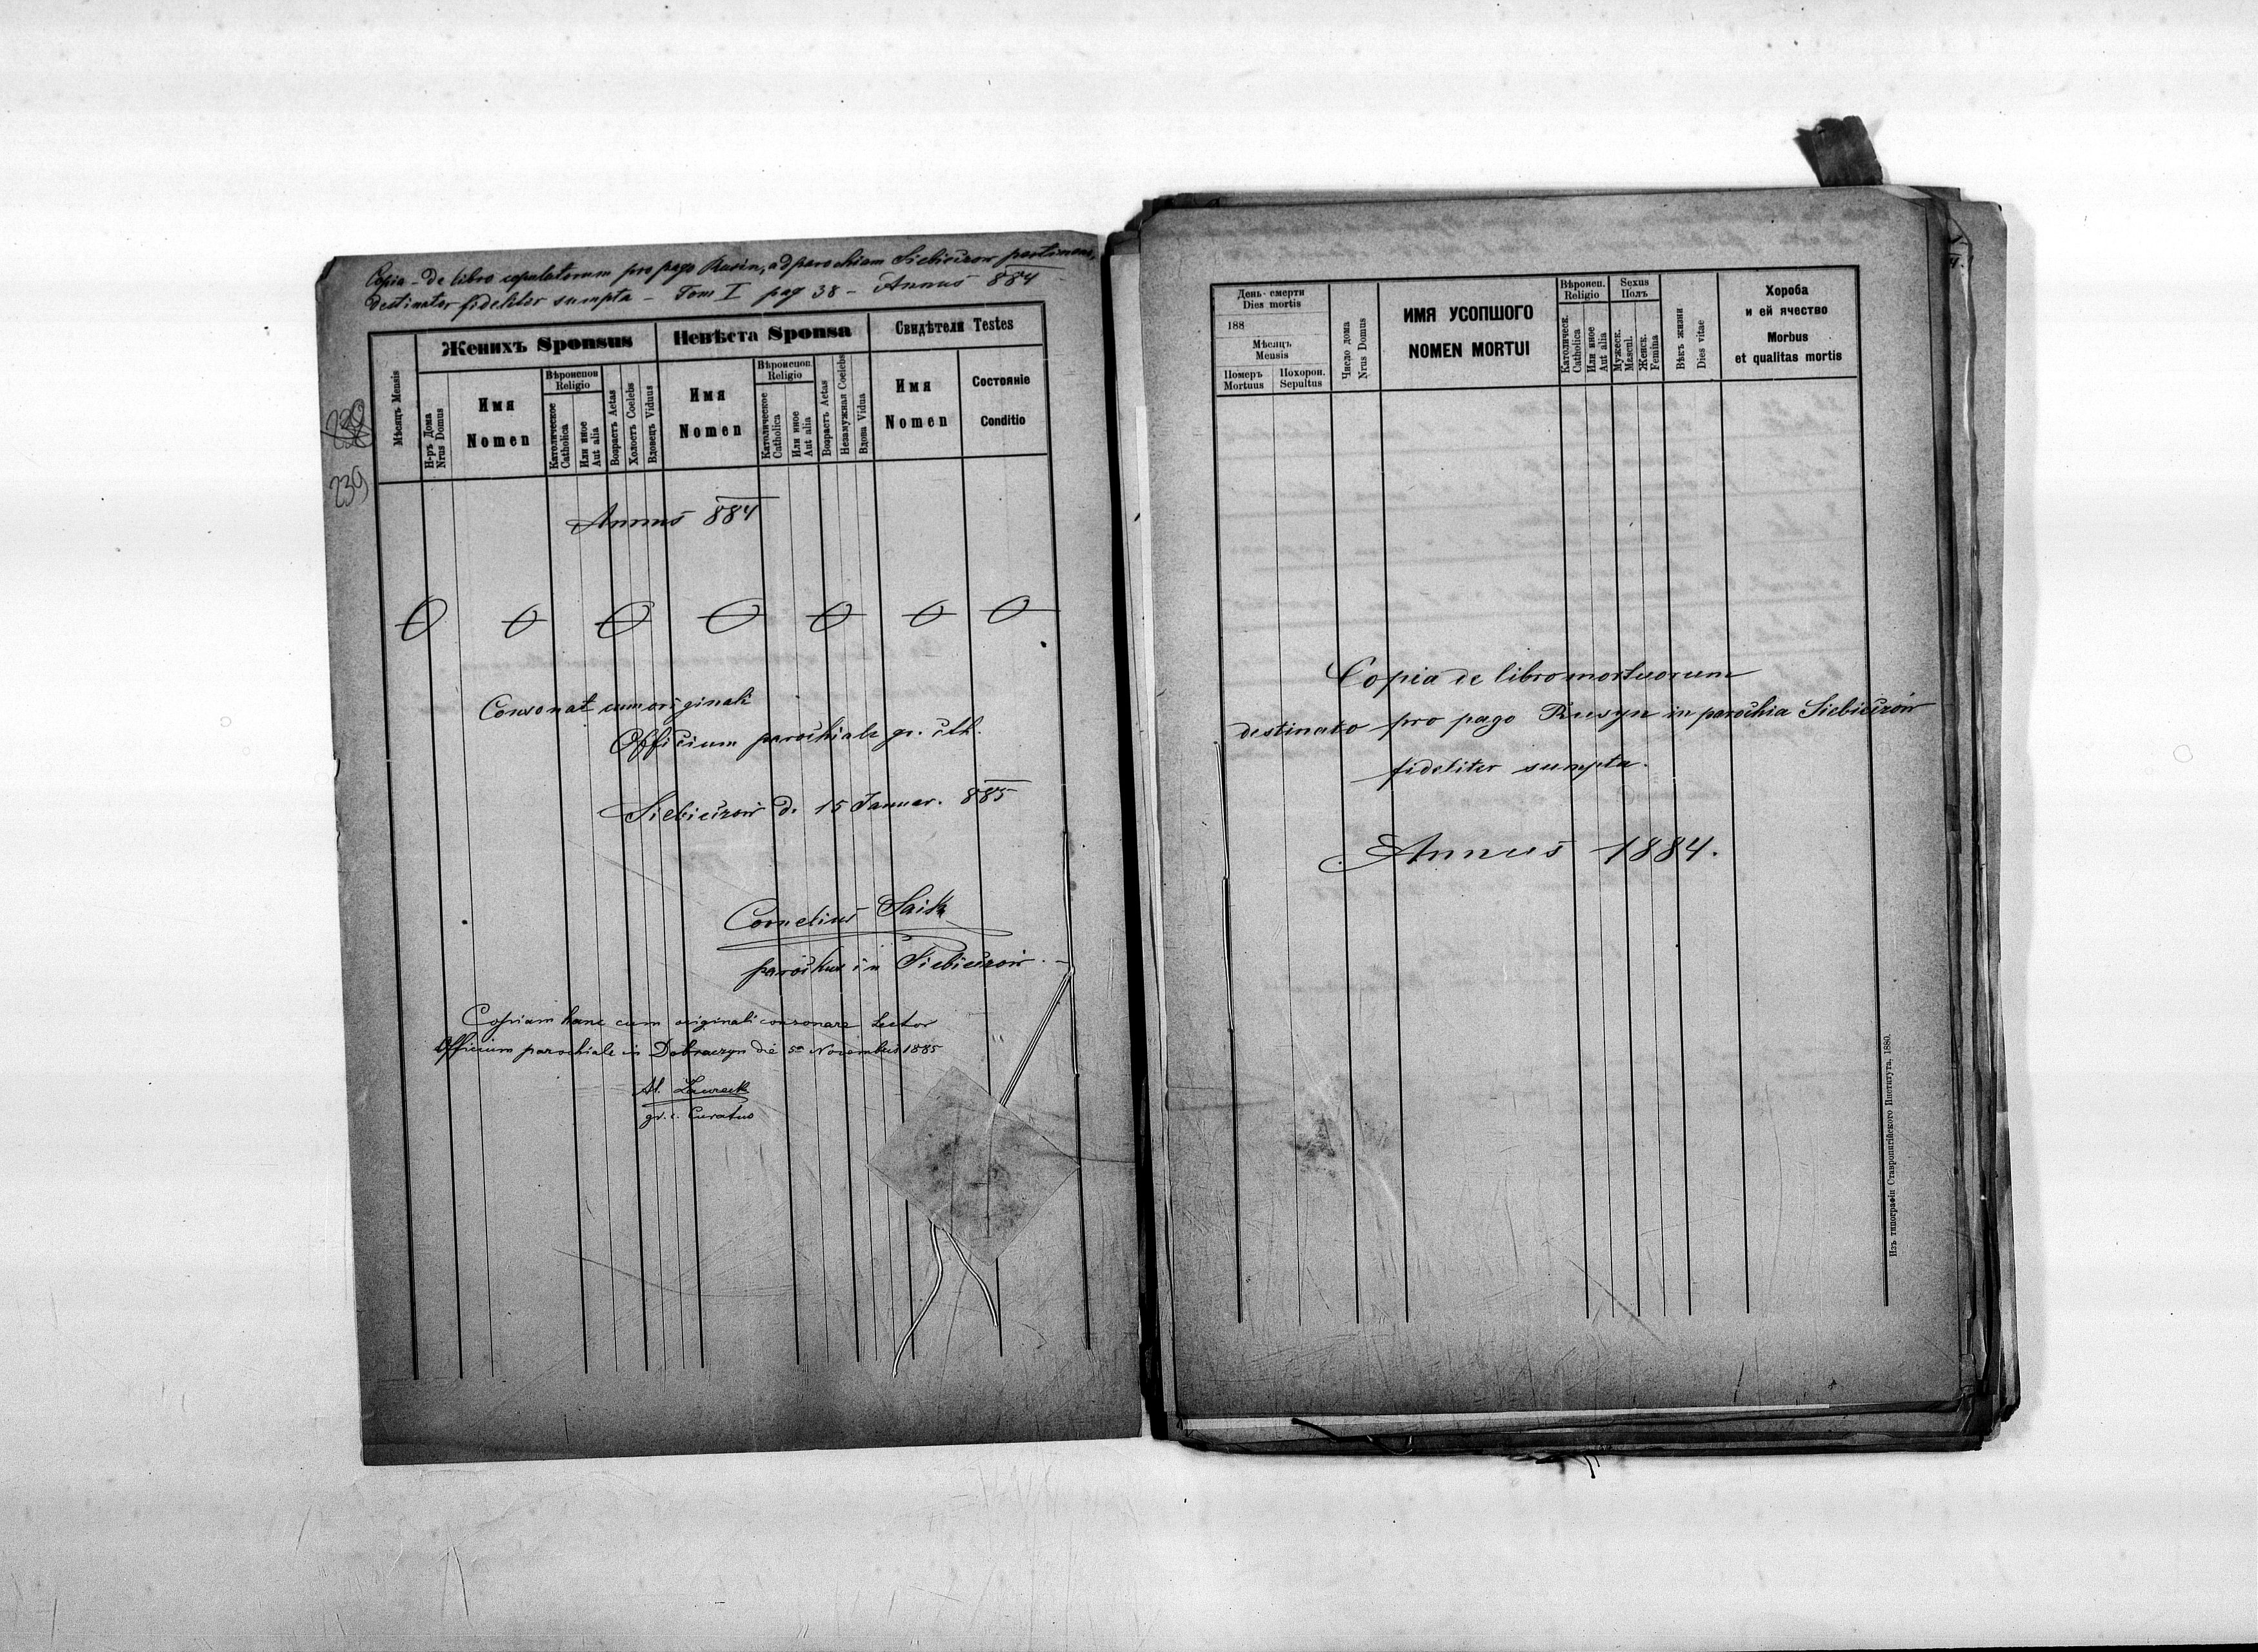 Copia - de libro copulatorum pro pago Rusin, ad parochiam Siebieczow pertinens,
destinato, fideliter sumpta - Tom I pag 38 - Annus 884
238
239
Женихъ Sponsus
Невѣста Sponsa
Свидѣтели Testes
Мѣсяцъ Mensis
Н-ръ Дома
Nrus Domus
Имя
Nomen
Вѣроиспов
Religio
Католическое
Catholica
Или иное
Aut alia
Возрастъ Aetas
Холостъ Coelebs
Вдовецъ Viduus
Имя
Nomen
Вѣроиспов.
Religio
Католическое
Catholica
Или иное
Aut alia
Возрастъ Aetas
Незамужная Coelebs
Вдова Vidua
Имя
Nomen
Состояніе
Conditio
Annus 884
Consonat cum originali
Officium parochiale gr. cth.
Siebieczow d. 15 Januar. 885
Cornelius
parochus in Siebieczow.
Copiam hanc cum originali consonare
Officium parochiale in Dobraczyn die 5a Novembris 1885
gr. c. Curatus
День смерти
Dies mortis
188
Мѣсяцъ
Mensis
Померъ
Mortuus
Похорон.
Sepultus
Число дома
Nrus Domus
ИМЯ УСОПШОГО
NOMEN MORTUI
Вѣроисп.
Religio
Католическ.
Catholica
Или иное
Aut alia
Sexus
Полъ
Мужеск.
Mascul.
Женск.
Femina
Вѣкъ жизни
Dies vitae
Хороба
и ей ячество
Morbus
et qualitas mortis
Copia de libro mortuorum
destinato pro pago Rusyn in parochia Siebieczów
fideliter sumpta.
Annus 1884.
Изъ типографіи Ставропигійского Института, 1880.